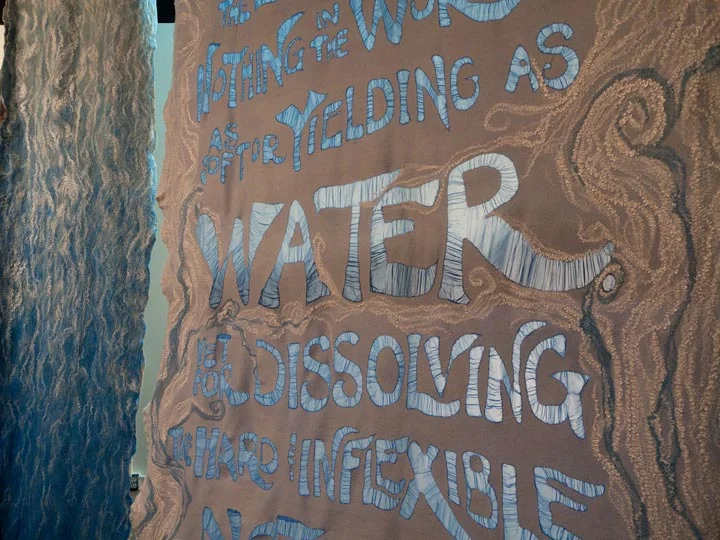 NOTHING IN THE
AS SOFT OR YIELDING AS
WATER
YET FOR DISSOLVING
THE HARD & INFLEXIBLE